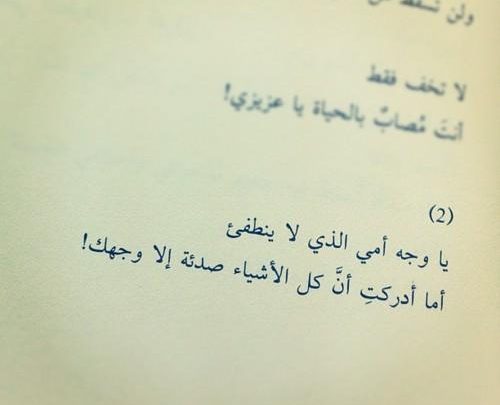 ولن تسقط
لا تخف فقط
أنتَ مُصابٌ بالحياة يا عزيزي!
(2)
يا وجه أمي الذي لا ينطفئ
أما أدركتِ أنَّ كل الأشياء صدئة إلا وجهك!